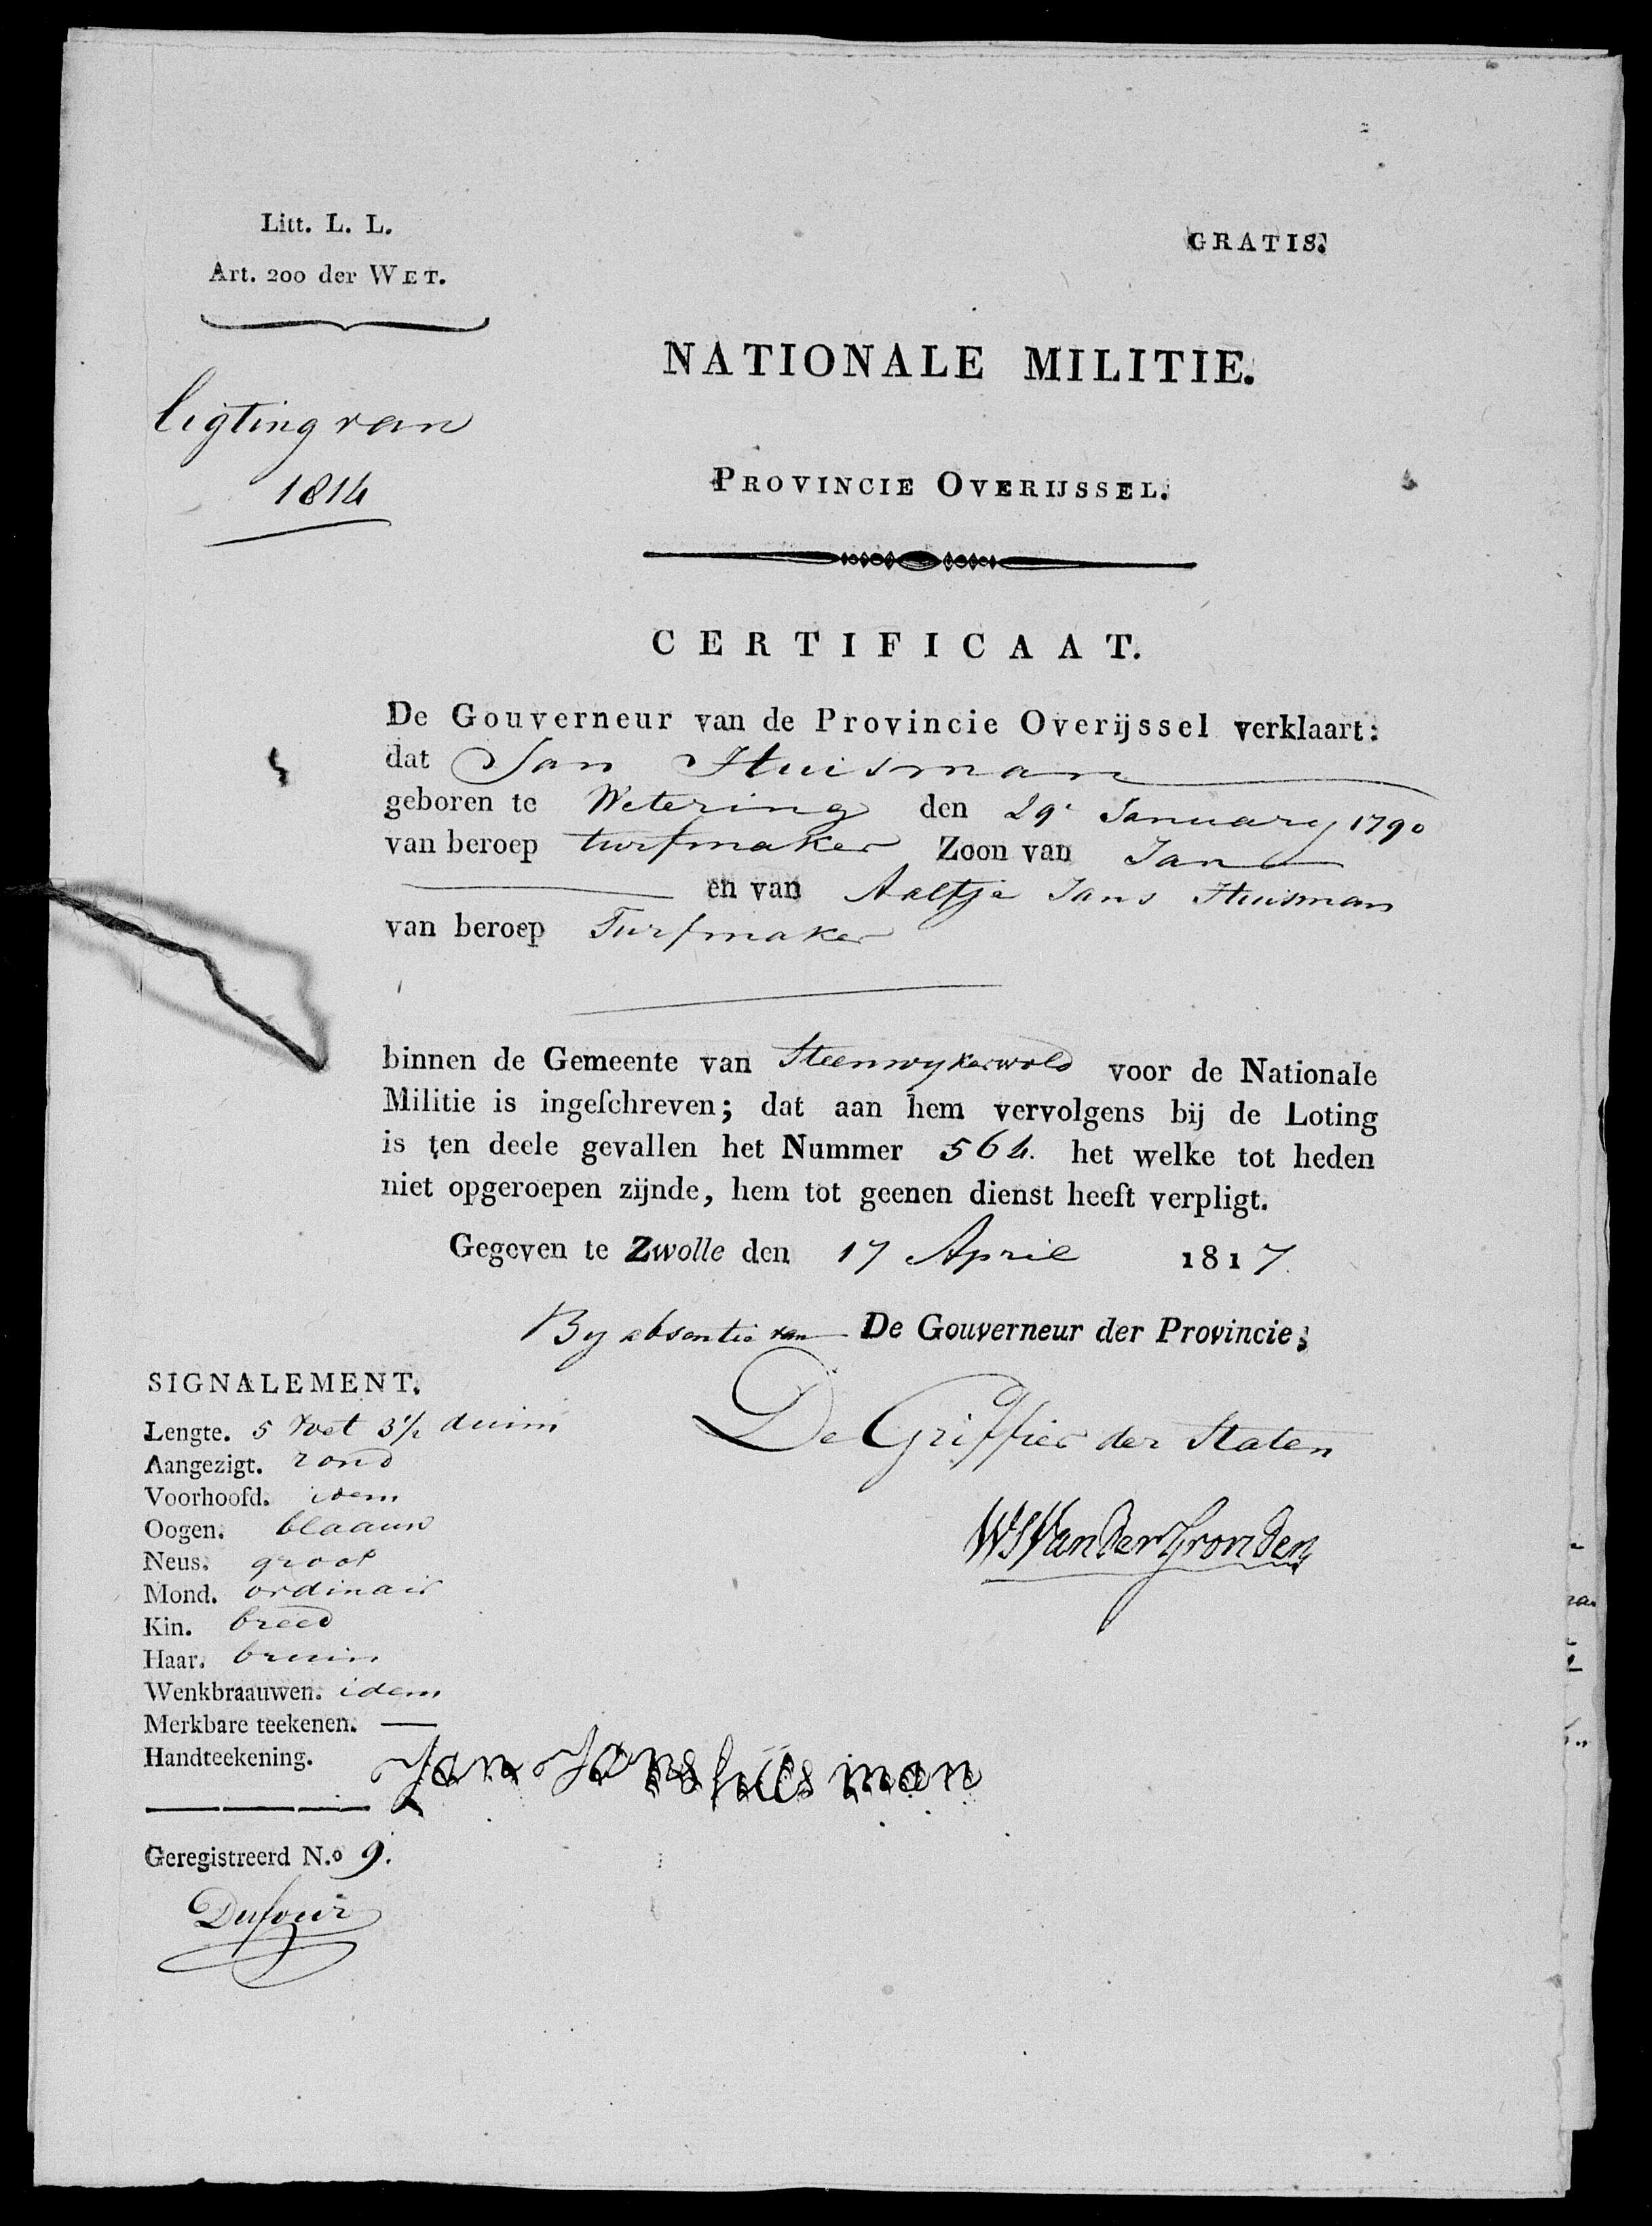 Litt. L. L.
Art. 200 der WET.
GRATIS.
ligting van
1814
NATIONALE MILITIE.
PROVINCIE OVERIJSSEL.
CERTIFICAAT.
De Gouverneur van de Provincie Overijssel verklaart:
dat Jan Huisman
geboren te Wetering den 29 January 1790
van beroep turfmaker Zoon van Jan
en van Aaltje Jans Huisman
van beroep Turfmaker
binnen de Gemeente van Steenwykerwold voor de Nationale
Militie is ingeſchreven; dat aan hem vervolgens bij de Loting
is ten deele gevallen het Nummer 564. het welke tot heden
niet opgeroepen zijnde, hem tot geenen dienst heeft verpligt.
Gegeven te Zwolle den 17 April 1817.
By absentie van De Gouverneur der Provincie;
De Griffier der Staten
WS Van der Gronden
SIGNALEMENT.
Lengte. 5 Voet 3 1/2 duim
Aangezigt. rond
Voorhoofd. idem
Oogen. blaauw
Neus. groot
Mond. ordinair
Kin. breed
Haar. bruin
Wenkbraauwen. idem
Merkbare teekenen. —
Handteekening. Jan Jans huisman
Geregistreerd N.o 9.
Dufour